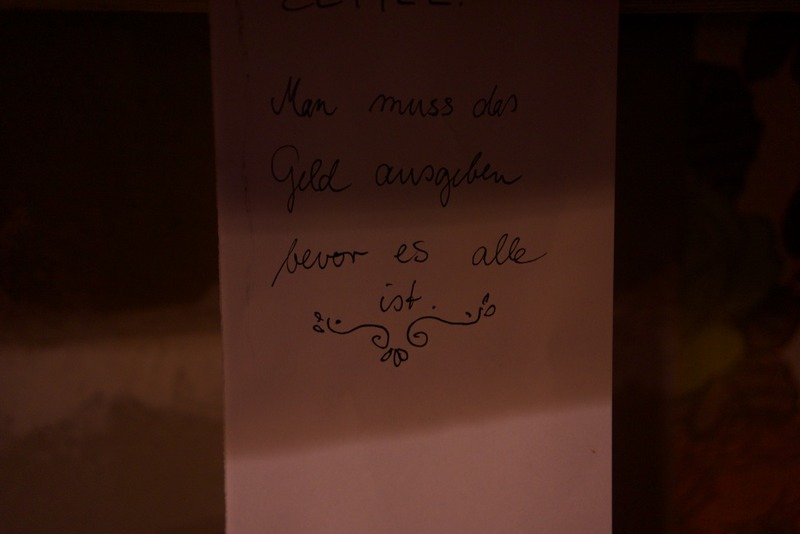 Man muss das
Geld ausgeben
bevor es alle
ist.